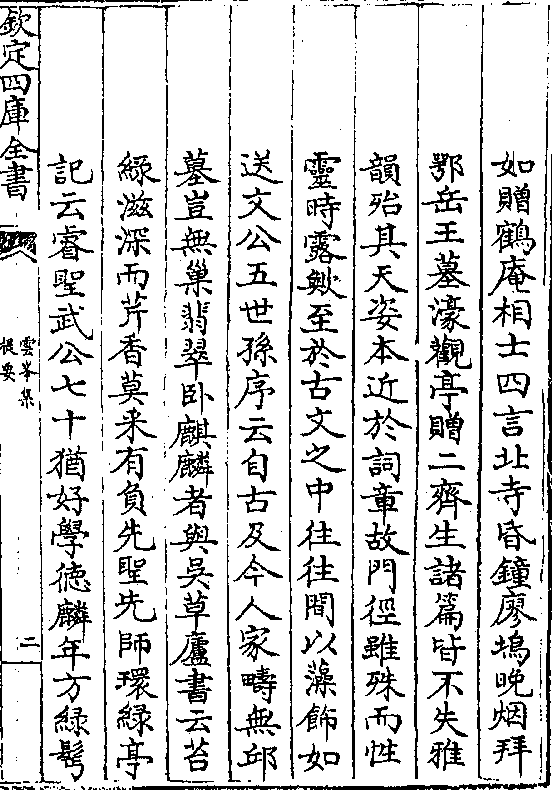 如贈鶴庵相士四言北寺昏鐘廖塢晚烟拜
鄂岳王墓濠觀亭贈二齊生諸篇皆不失雅
韻殆其天姿本近於詞章故門徑雖殊而性
靈時露歟至於古文之中往往間以藻飾如
送文公五世孫序云自古及今人家疇無邱
墓豈無巢翡翠卧麒麟者與吳草廬書云苔
綠滋深而芹香莫采有負先聖先師環綠亭
記云睿聖武公七十猶好學德麟年方綠髩
欽定四庫全書
雲峯集
提要
二